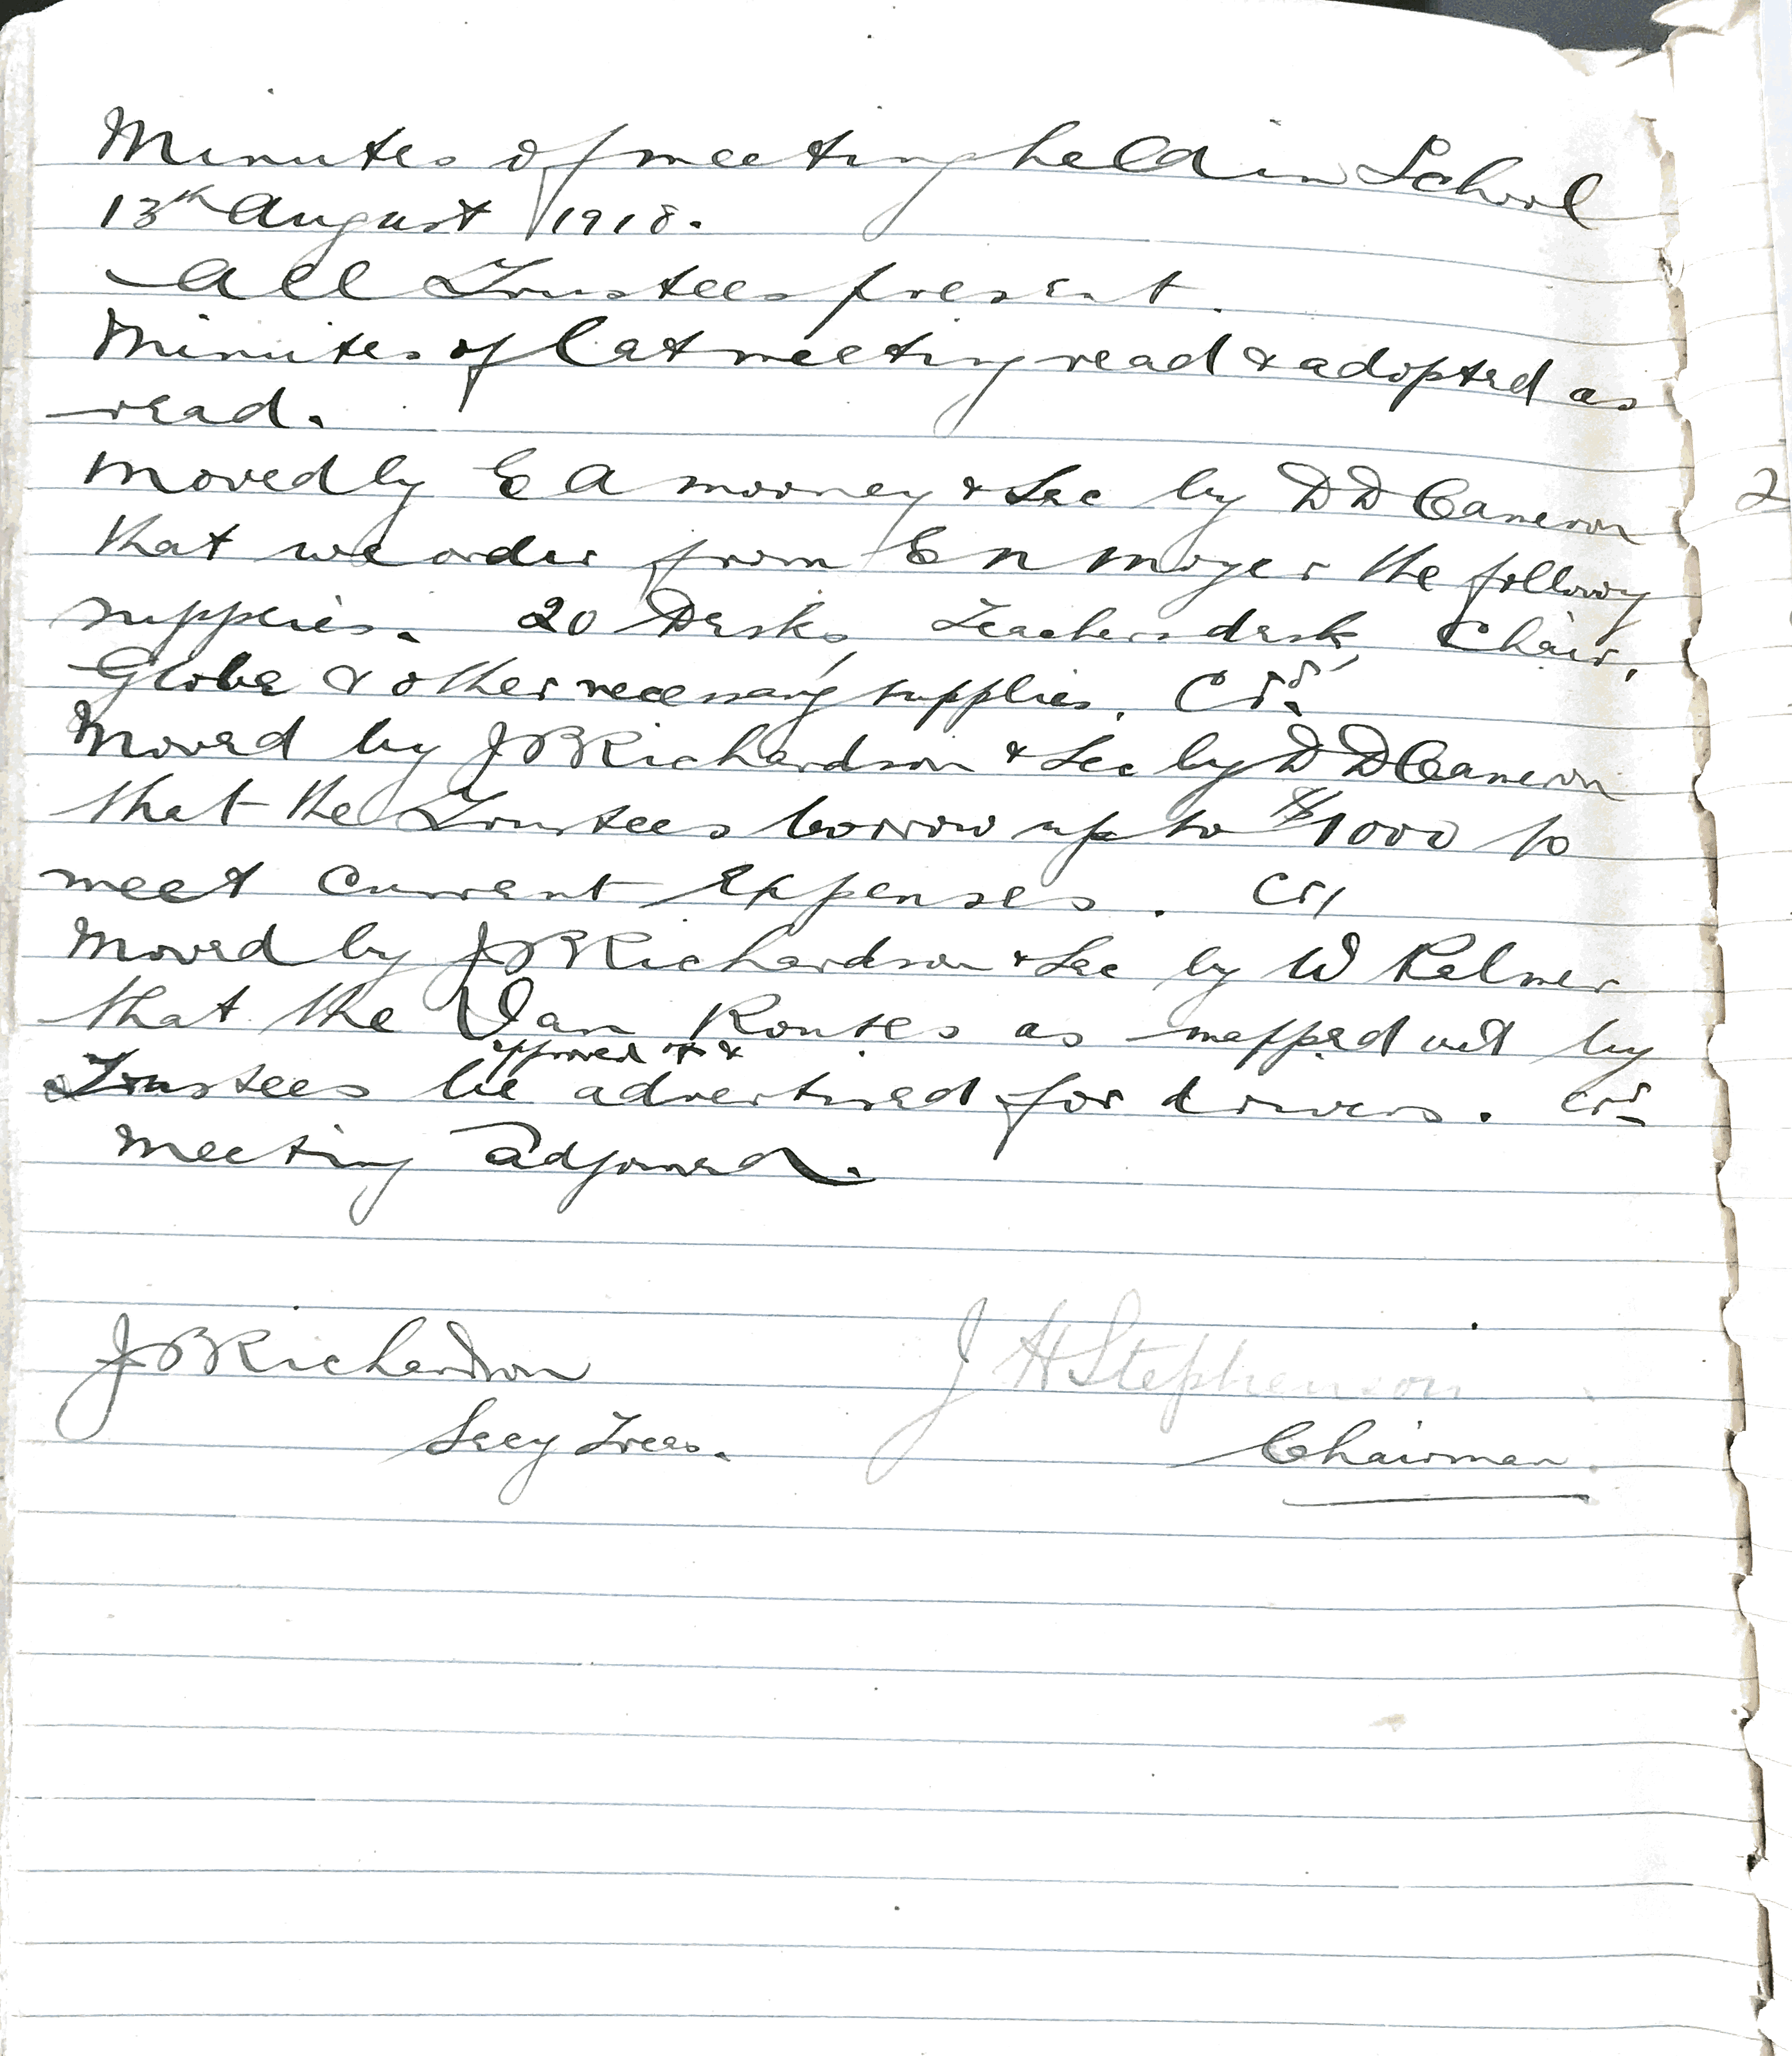 Minutes of meeting held in School
13th August 1918.
All Trustees present.
Minutes of last meeting read & adopted as
read.
Moved by E A Mooney & Sec by D D Cameron
that we order from E N Moyer the following
supplies. 20 Desks, Teachers desk, Chair,
Globe & other necessary supplies. Crd
Moved by J B Richardson & Sec by D D Cameron
that the Trustees borrow up to $1000 to
meet current expenses. Crd
Moved by J B Richardson & Sec by W Palmer
that the Van Routes as mapped out by
approved of &
Trustees be advertised for drivers. Crd
Meeting adjourned.
J B Richardson
J H Stephenson
Secy Treas.
Chairman.